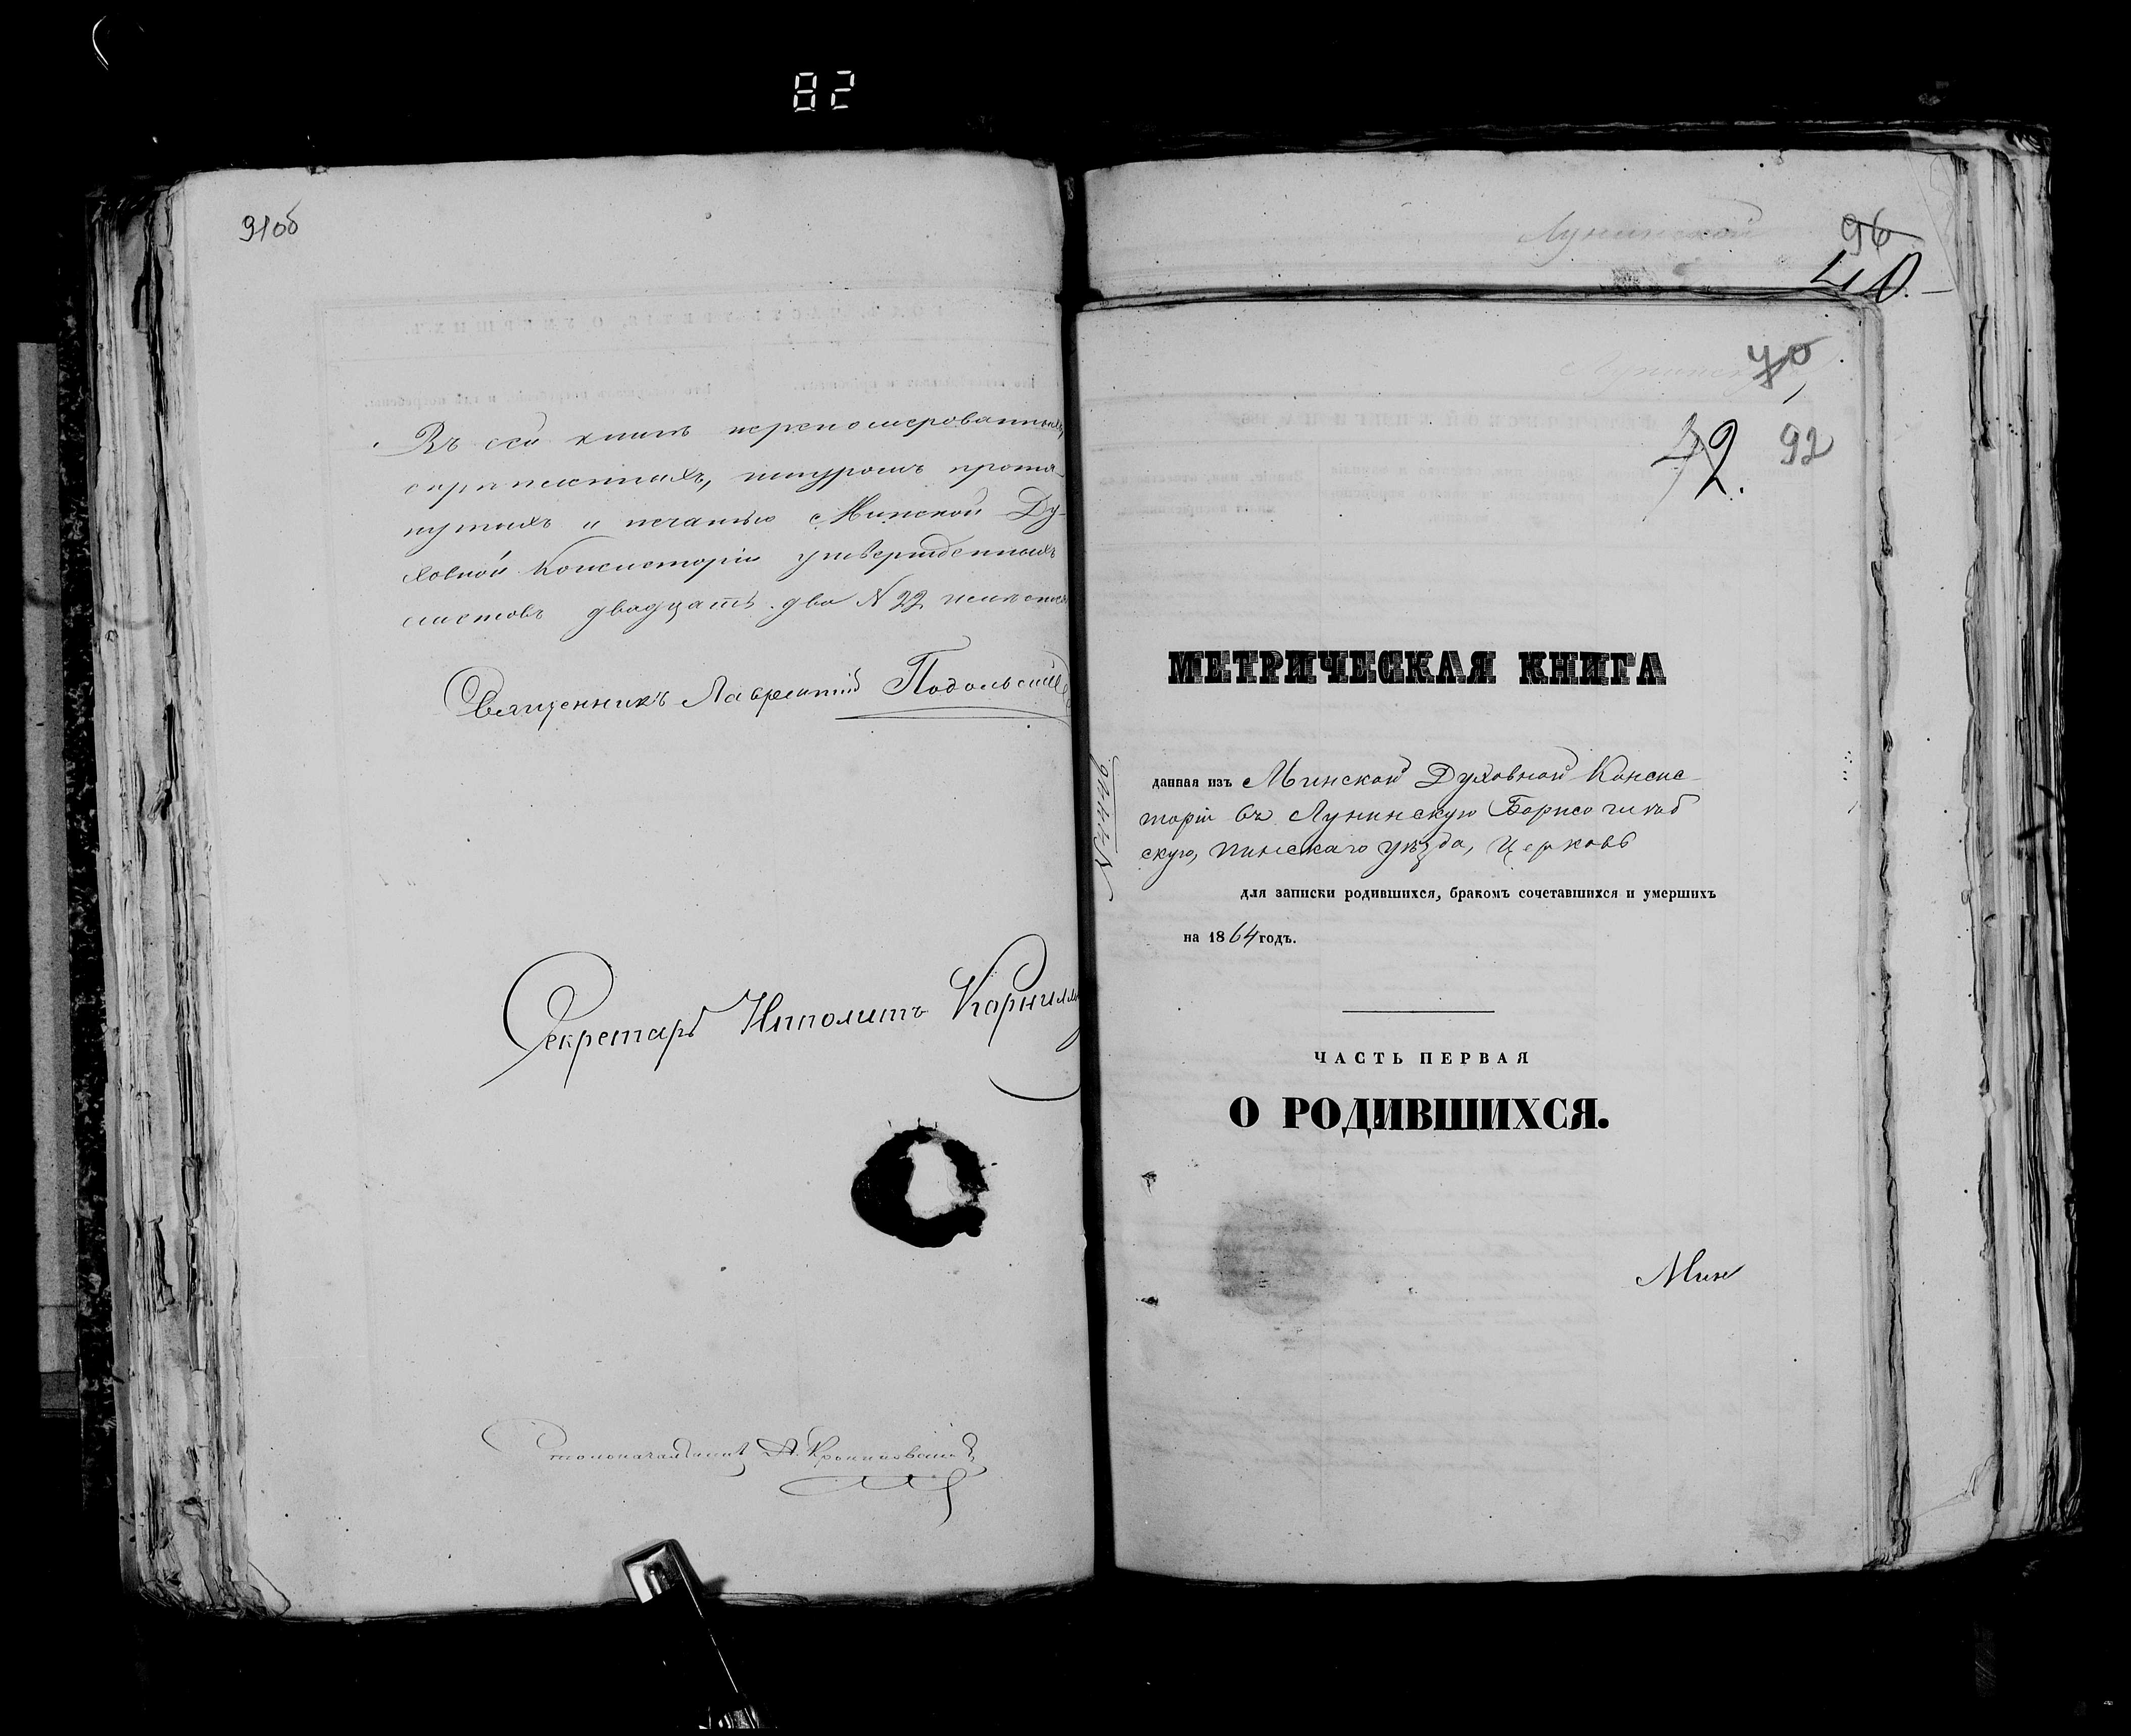 82
91об
Въ сей книгѣ перенумерованныхъ
скрѣпленныхъ, шнуромъ протя-
нутыхъ и печатью Минской Ду-
ховной Консисторіи утвержденныхъ
листовъ двадцать два № 22
Священникъ Лаврентій Подольскій
Секретарь Ипполитъ Корнил
Столоначальникъ
Лунинской
96
40.
40
42.
92
МЕТРИЧЕСКАЯ КНИГА
№ 4446
данная изъ Минской Духовной Консис-
торіи въ Лунинскую Борисоглѣб
скую, Пинскаго уѣзда, церковь
для записки родившихся, бракомъ сочетавшихся и умершихъ
на 1864 годъ.
ЧАСТЬ ПЕРВАЯ
О РОДИВШИХСЯ.
Мин